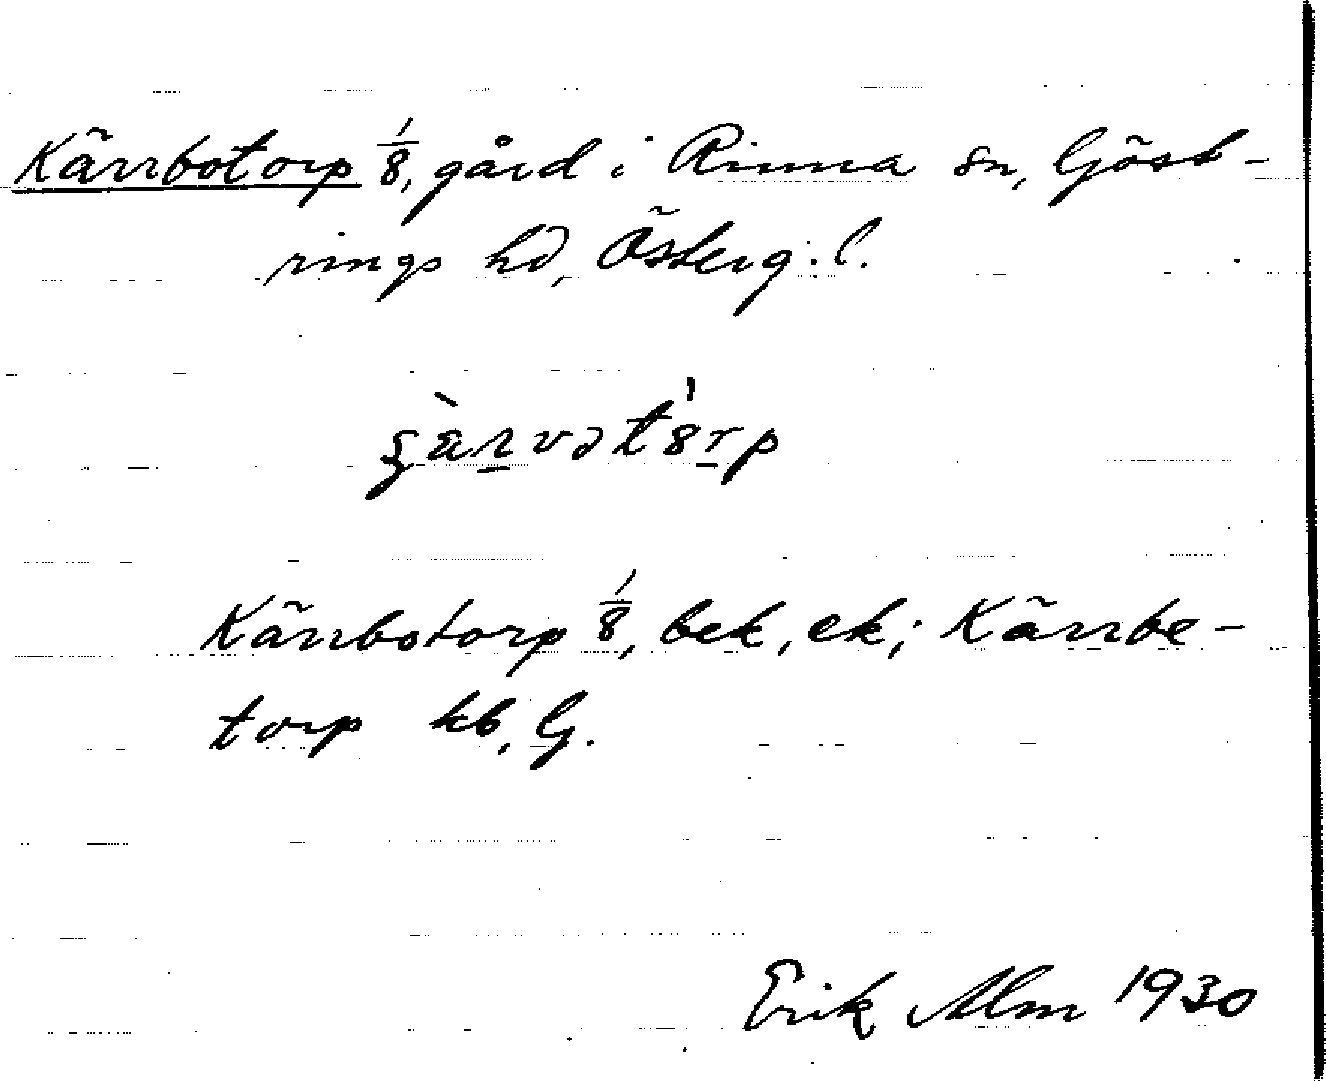 Kärrbotorp 1/8, gård i Rinna sn, Göst-
rings hd, Österg. l.
Kärrbotorp 1/8, bek, ek; Kärrbe-
torp kb, G.
Erik Alm 1930